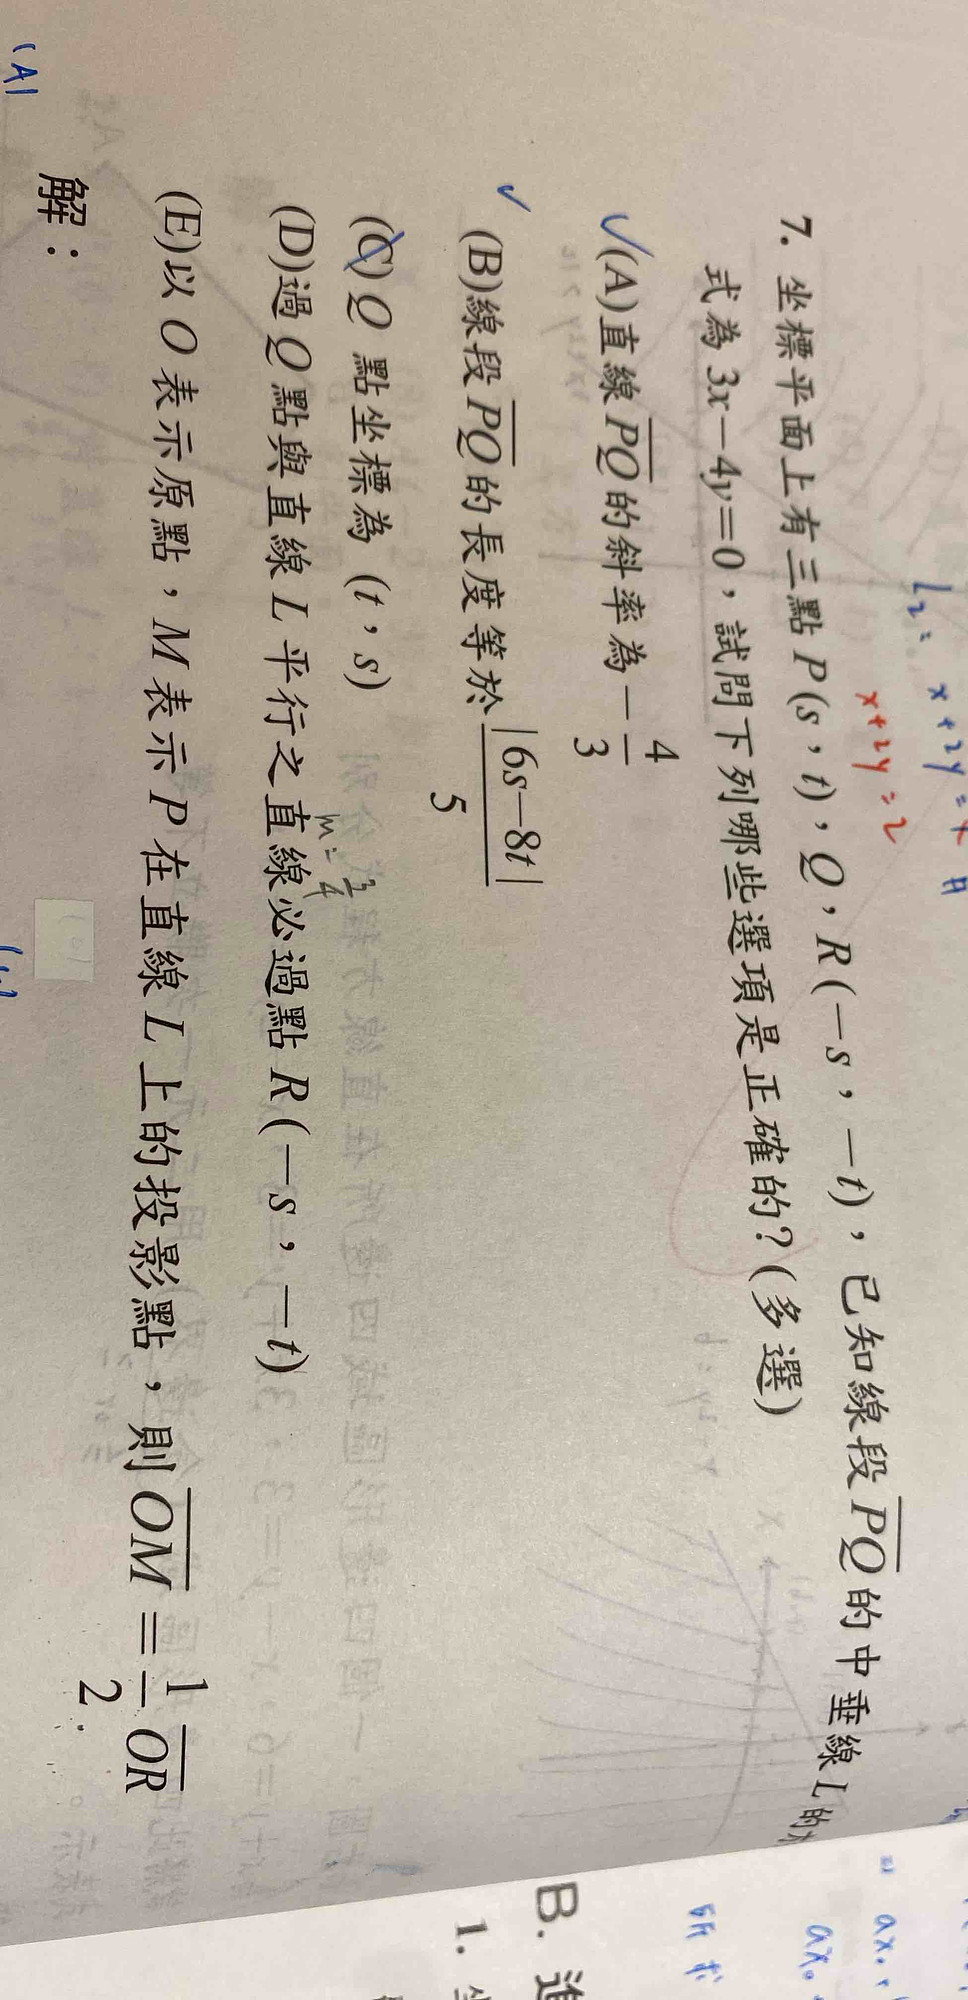 L₂: x+2y=4
x+2y=2
7. 坐標平面上有三點 P(s,t),Q,R(-s,-t),已知線段PQ的中垂線 L 的
式為 3x-4y=0,試問下列哪些選項是正確的?(多選)
✓(A)直線PQ的斜率為-4/3
✓(B)線段PQ的長度等於|6s-8t|/5
(C)Q 點坐標為 (t,s)
m=3/4
(D)過 Q 點與直線 L 平行之直線必過點 R(-s,-t)
(E)以 O 表示原點,M 表示 P 在直線 L 上的投影點,則OM=1/2 OR
解:
(A)
= ax₀+
ax₀
所求
B. 進
1.